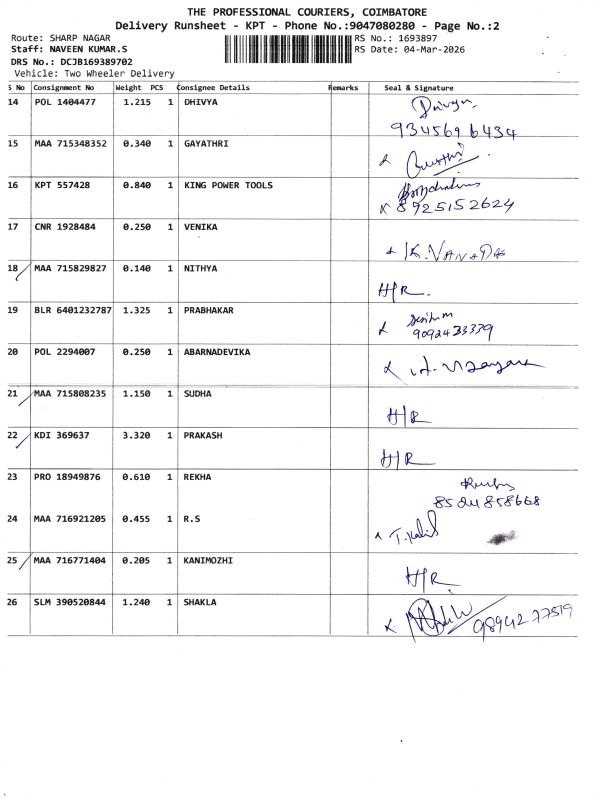 THE PROFESSIONAL COURIERS, COIMBATORE
Delivery Runsheet - KPT - Phone No.:9047080280 - Page No.:2
Route: SHARP NAGAR RS No.: 1693897
Staff: NAVEEN KUMAR.S RS Date: 04-Mar-2026
DRS No.: DCJB169389702
Vehicle: Two Wheeler Delivery
S No Consignment No Weight PCS Consignee Details Remarks Seal & Signature
14 POL 1404477 1.215 1 DHIVYA
9345696434
15 MAA 715348352 0.340 1 GAYATHRI
16 KPT 557428 0.840 1 KING POWER TOOLS
8925152624
17 CNR 1928484 0.250 1 VENIKA
18 MAA 715829827 0.140 1 NITHYA
H/R.
19 BLR 6401232787 1.325 1 PRABHAKAR
20 POL 2294007 0.250 1 ABARNADEVIKA
21 MAA 715808235 1.150 1 SUDHA
H/R
22 KDI 369637 3.320 1 PRAKASH
H/R
23 PRO 18949876 0.610 1 REKHA
8524858668
24 MAA 716921205 0.455 1 R.S
25 MAA 716771404 0.205 1 KANIMOZHI
H/R.
26 SLM 390520844 1.240 1 SHAKLA